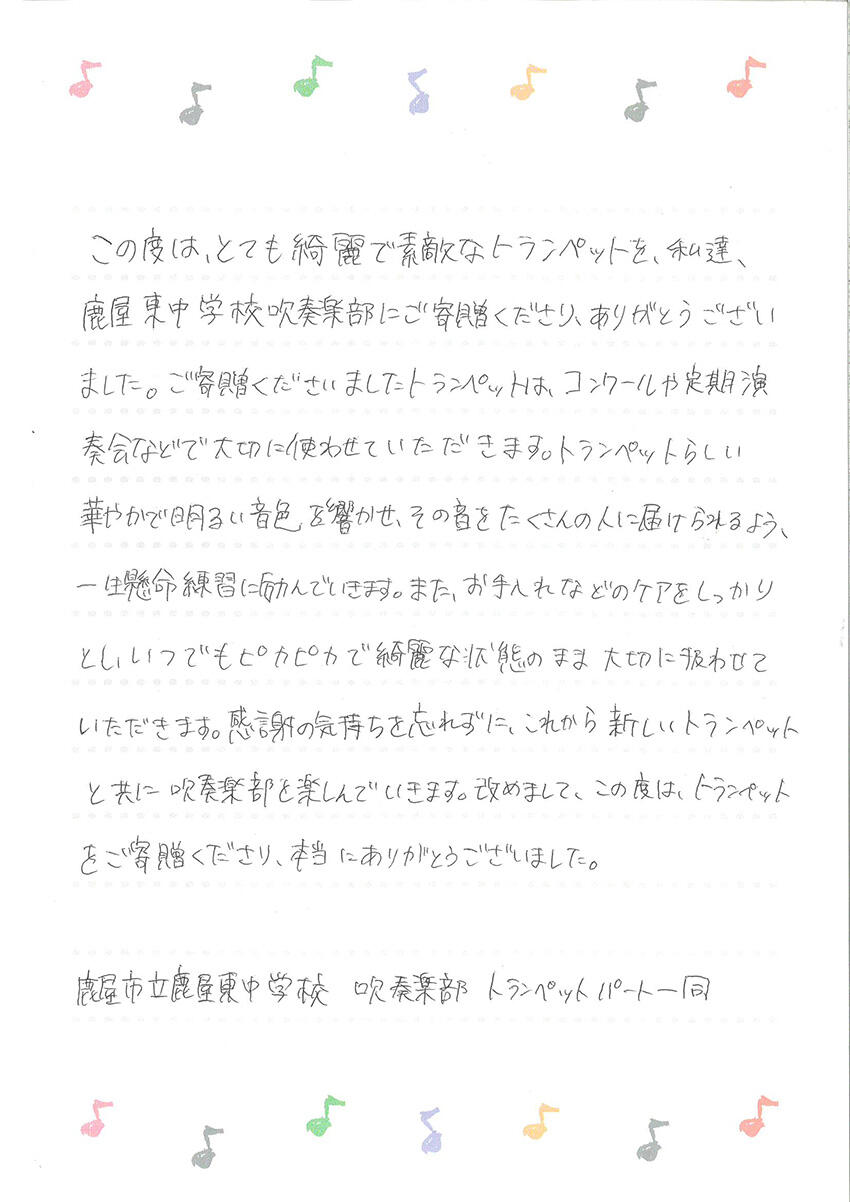 この度は、とても綺麗で素敵なトランペットを、私達、
鹿屋東中学校吹奏楽部にご寄贈くださり、ありがとうござい
ました。ご寄贈くださいましたトランペットは、コンクールや定期演
奏会などで大切に使わせていただきます。トランペットらしい
華やかで明るい音色を響かせ、その音をたくさんの人に届けられるよう、
一生懸命練習に励んでいきます。また、お手入れなどのケアをしっかり
とし、いつでもピカピカで綺麗な状態のまま大切に扱わせて
いただきます。感謝の気持ちを忘れずに、これから新しいトランペット
と共に吹奏楽部を楽しんでいきます。改めまして、この度は、トランペット
をご寄贈くださり、本当にありがとうございました。
鹿屋市立鹿屋東中学校 吹奏楽部 トランペットパート一同